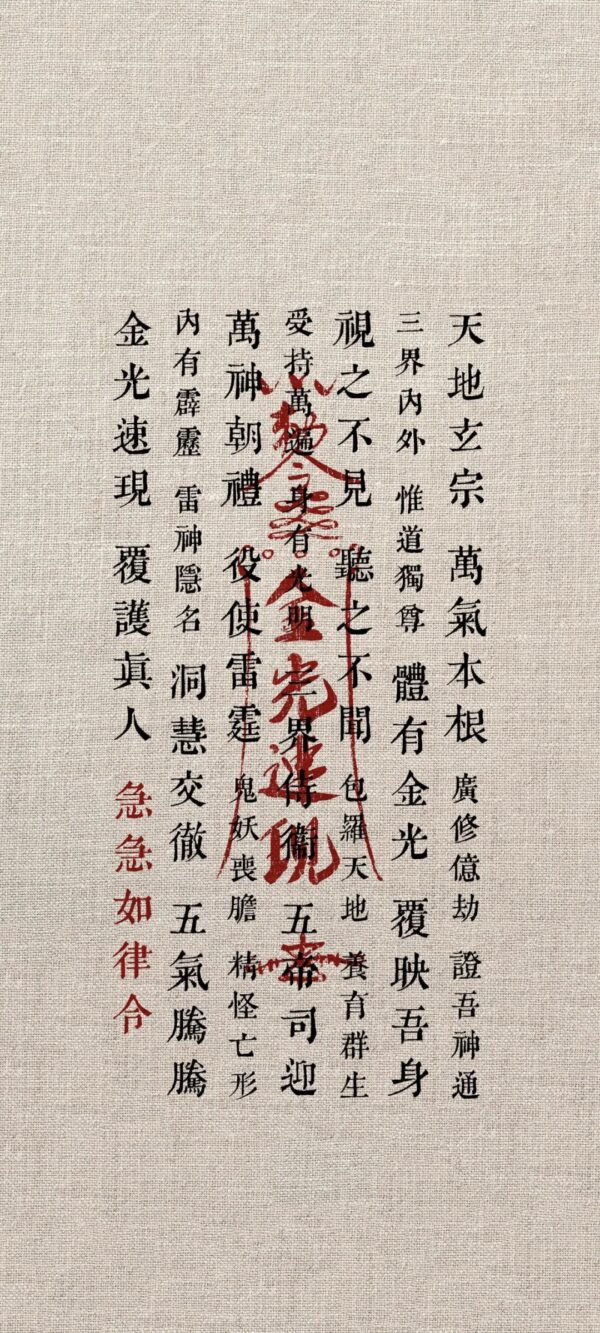 天地玄宗 萬氣本根 廣修億劫 證吾神通
三界內外 惟道獨尊 體有金光 覆映吾身
視之不見 聽之不聞 包羅天地 養育群生
受持萬遍 身有光明 三界侍衛 五帝司迎
萬神朝禮 役使雷霆 鬼妖喪膽 精怪亡形
內有霹靂 雷神隱名 洞慧交徹 五氣騰騰
金光速現 覆護真人 急急如律令
敕令
金光速現